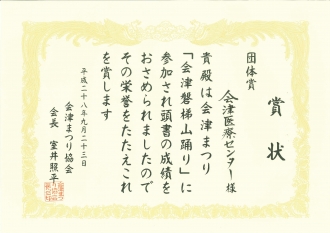 賞状
団体賞
会津医療センター様
貴殿は会津まつり
「会津磐梯山踊り」に
参加され頭書の成績を
おさめられましたので
その栄誉をたたえこれ
を賞します
平成二十八年九月二十三日
会津まつり協会
会長 室井照平